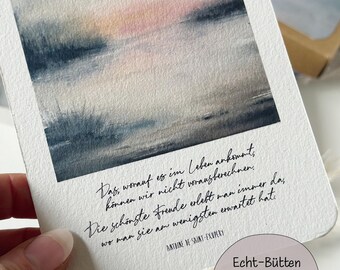 Das, worauf es im Leben ankommt,
können wir nicht vorausberechnen.
Die schönste Freude erlebt man immer da,
wo man sie am wenigsten erwartet hat.
ANTOINE DE SAINT-EXUPÉRY
Echt-Bütten